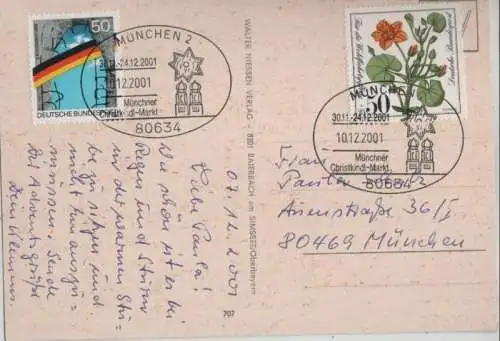 50
DEUTSCHE BUNDESPOST
MÜNCHEN 2
30.11.-24.12.2001
10.12.2001
Münchner
Christkindl-Markt
80634
50
Deutsche Bundespost
MÜNCHEN
30.11.-24.12.2001
10.12.2001
Münchner
Christkindl-Markt
80634
WALTER NIESSEN VERLAG - 8201 BAIERBACH am SIMSSEE/Oberbayern
707
07.12.2001
Liebe Paula!
Wie schön ist es bei
Regen und Sturm
in der warmen Stu-
be zu sitzen und
nicht hinausgu-
müssen. Sende
Dir Adventsgrüße
Dein
Frau
Paula
Auenstraße 36/I
80469 München